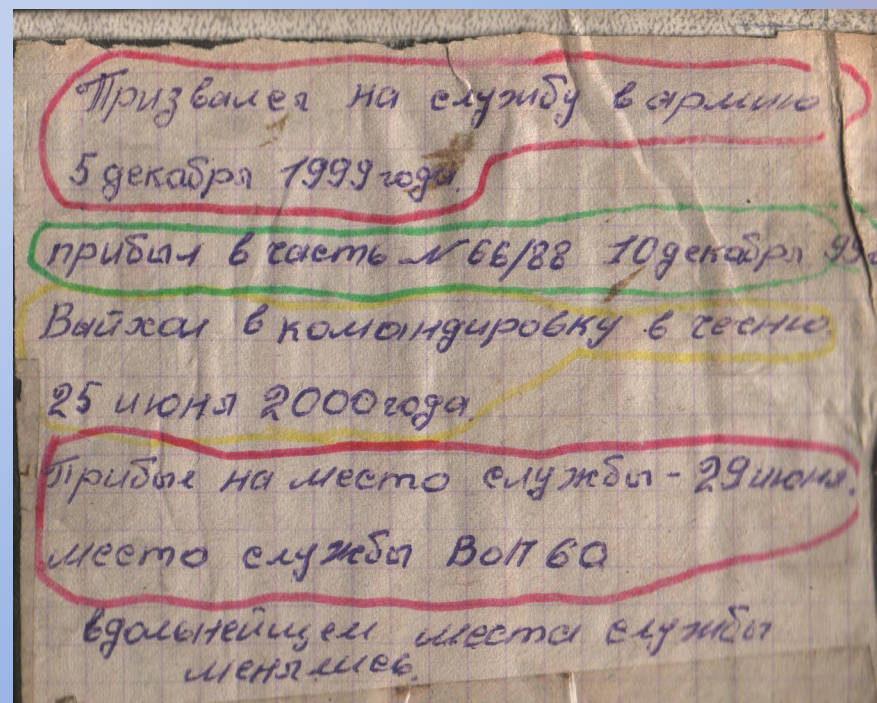 Призвался на службу в армию
5 декабря 1999 года.
прибыл в часть N 66/88 10 декабря 99г
Выйхал в командировку в чесню.
25 июня 2000 года.
Прибыл на место службы - 29 июня.
место службы ВоП 60
вдольнейщем места службы
менялись.